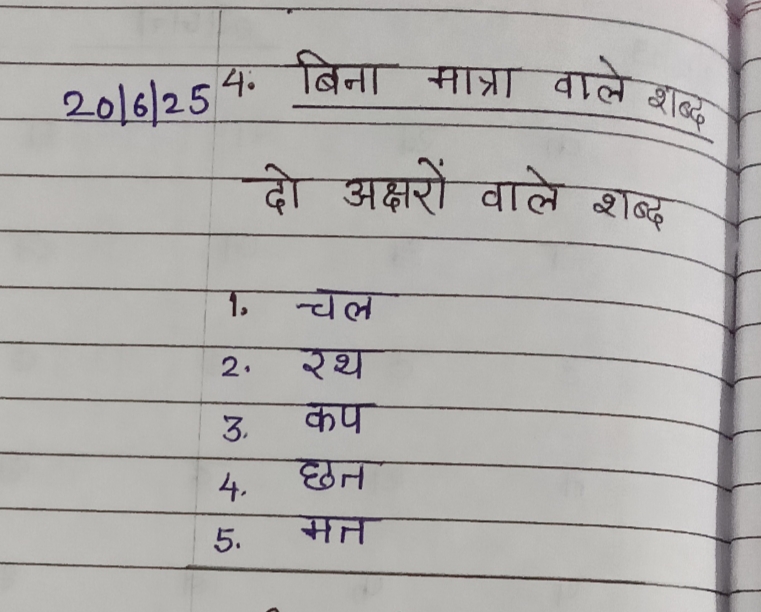 20/6/25 4. बिना मात्रा वाले शब्द
दो अक्षरों वाले शब्द
1. चल
2. रथ
3. कप
4. छत
5. मत